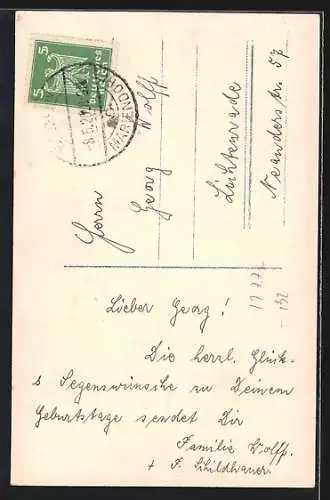 5 5
Herrn
Georg Wolff
Lichtenrade
Neanderstr. 57
Lieber Georg!
Die herrl. Glück-
s Segenswünsche zu Deinem
Geburtstage sendet Dir
Familie Wolff.
+ F. Schildhauer